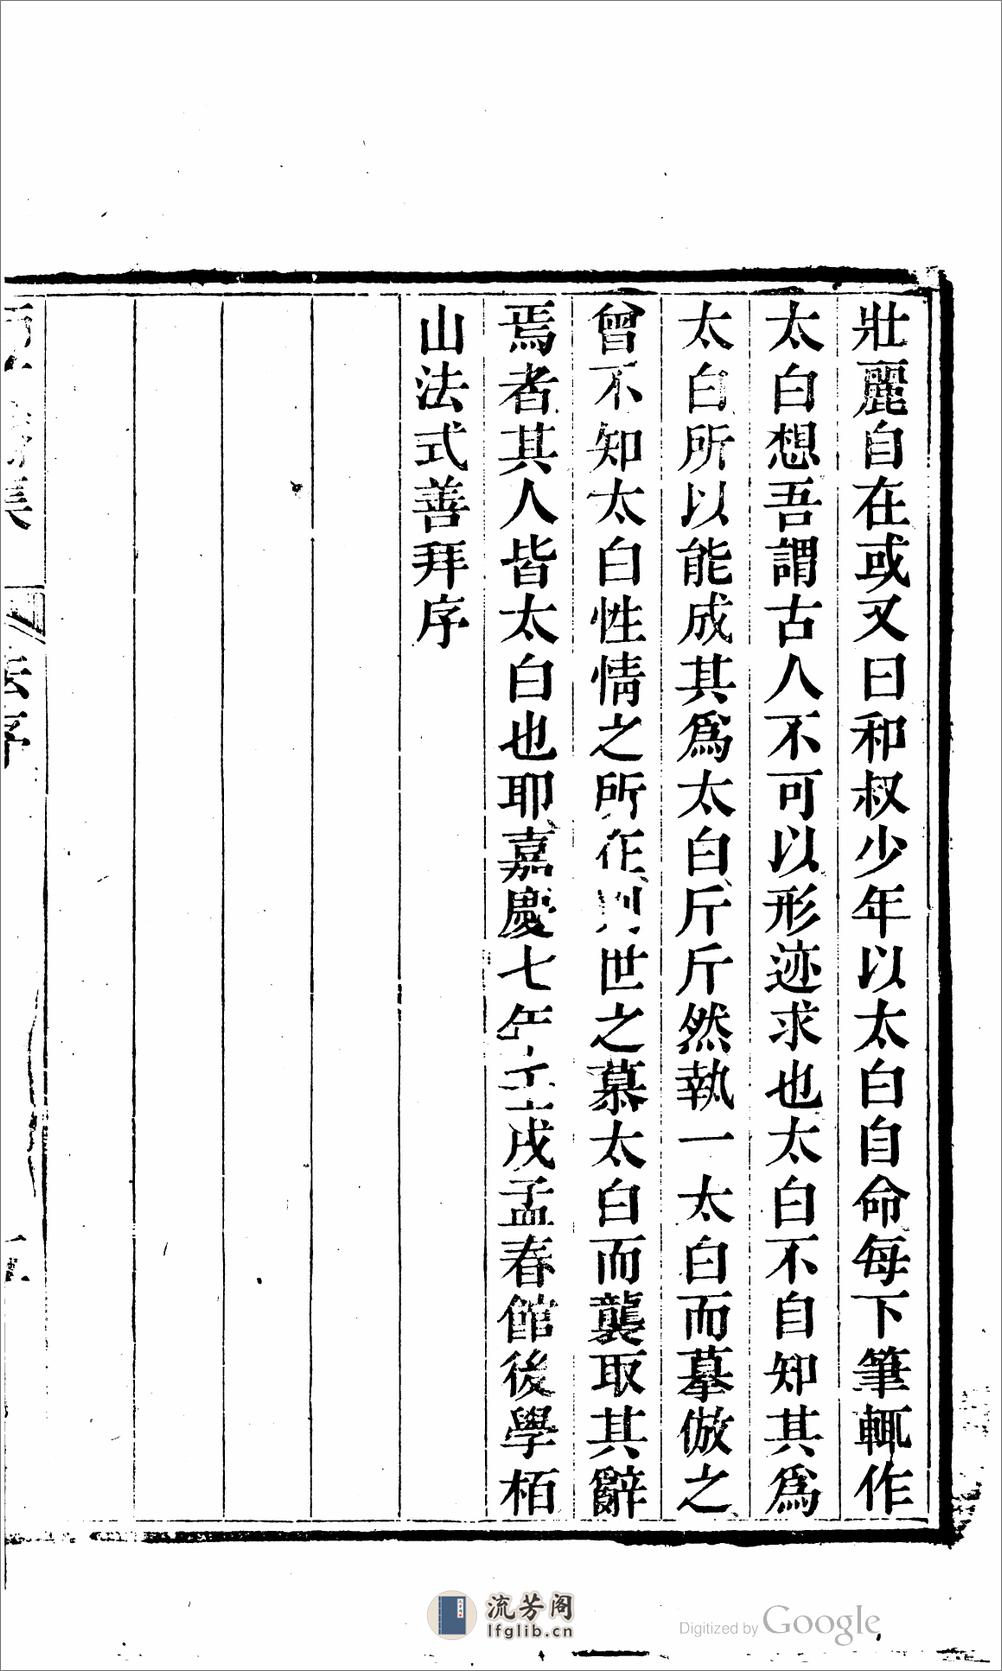 壯麗自在或又曰和叔少年以太白自命每下筆輒作
太白想吾謂古人不可以形迹求也太白不自知其爲
太白所以能成其爲太白斤斤然執一太白而摹倣之
曾不知太白性情之所在則世之慕太白而襲取其辭
焉者其人皆太白也耶嘉慶七年壬戌孟春館後學栢
山法式善拜序
集
法序
流芳阁
lfglib.cn
Digitized by Google